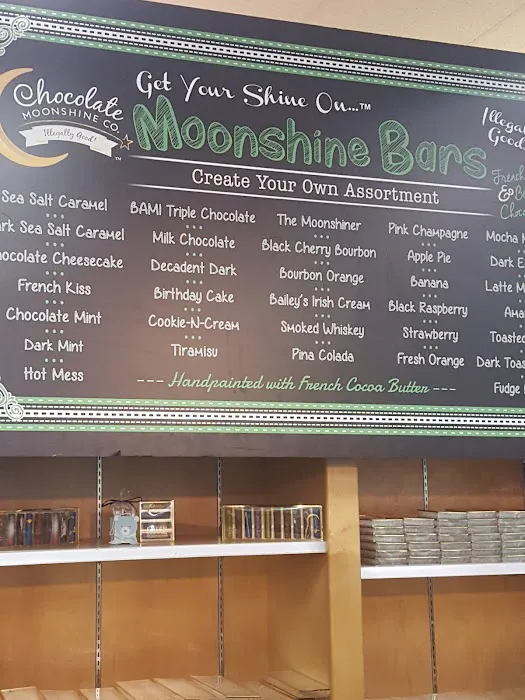 Chocolate
MOONSHINE CO.
Illegally Good!
Get Your Shine On...™
Moonshine Bars
Create Your Own Assortment
Sea Salt Caramel
Sea Salt Caramel
Cheesecake
French Kiss
Chocolate Mint
Dark Mint
Hot Mess
BAM! Triple Chocolate
Milk Chocolate
Decadent Dark
Birthday Cake
Cookie-N-Cream
Tiramisu
The Moonshiner
Black Cherry Bourbon
Bourbon Orange
Bailey's Irish Cream
Smoked Whiskey
Pina Colada
Pink Champagne
Apple Pie
Banana
Black Raspberry
Strawberry
Fresh Orange
Mocha
Dark
Latte
Dark
Fudge
--- Handpainted with French Cocoa Butter ---